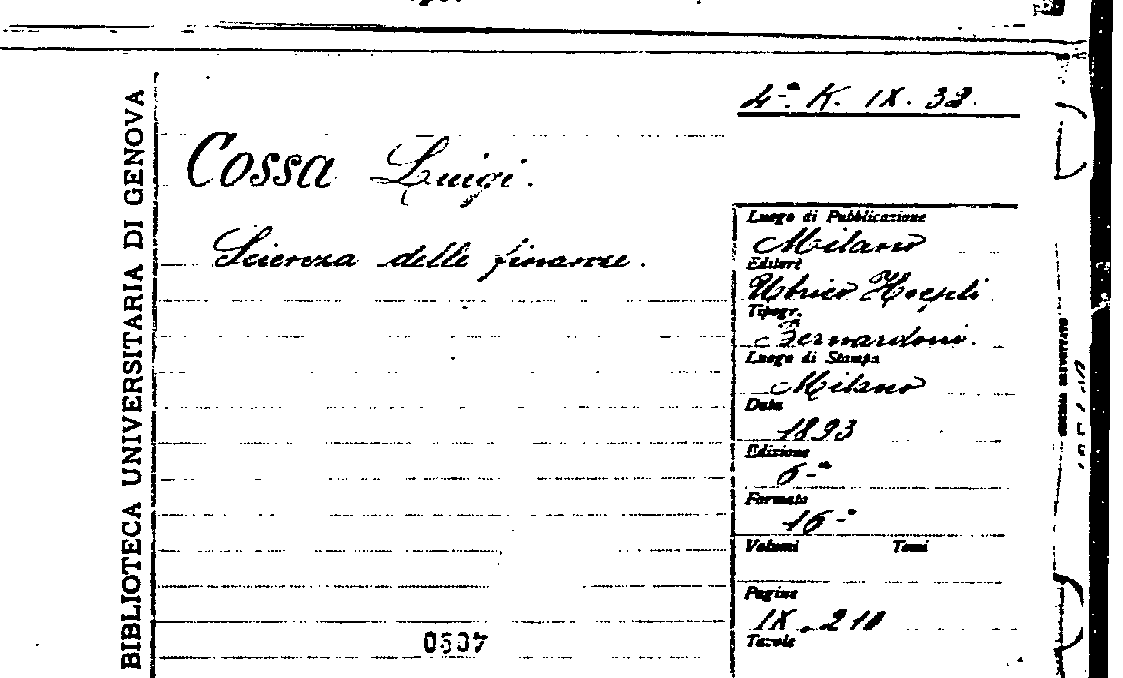 BIBLIOTECA UNIVERSITARIA DI GENOVA
4ª. K. IX. 32.
Cossa Luigi.
Scienza delle finanze.
Luogo di Pubblicazione
Milano
Editore
Ulrico Hoepli
Tipogr.
Bernardoni.
Luogo di Stampa
Milano
Data
1893
Edizione
6-ª
Formato
16-º
Volumi Tomi
Pagine
IX-210
Tavole
0507